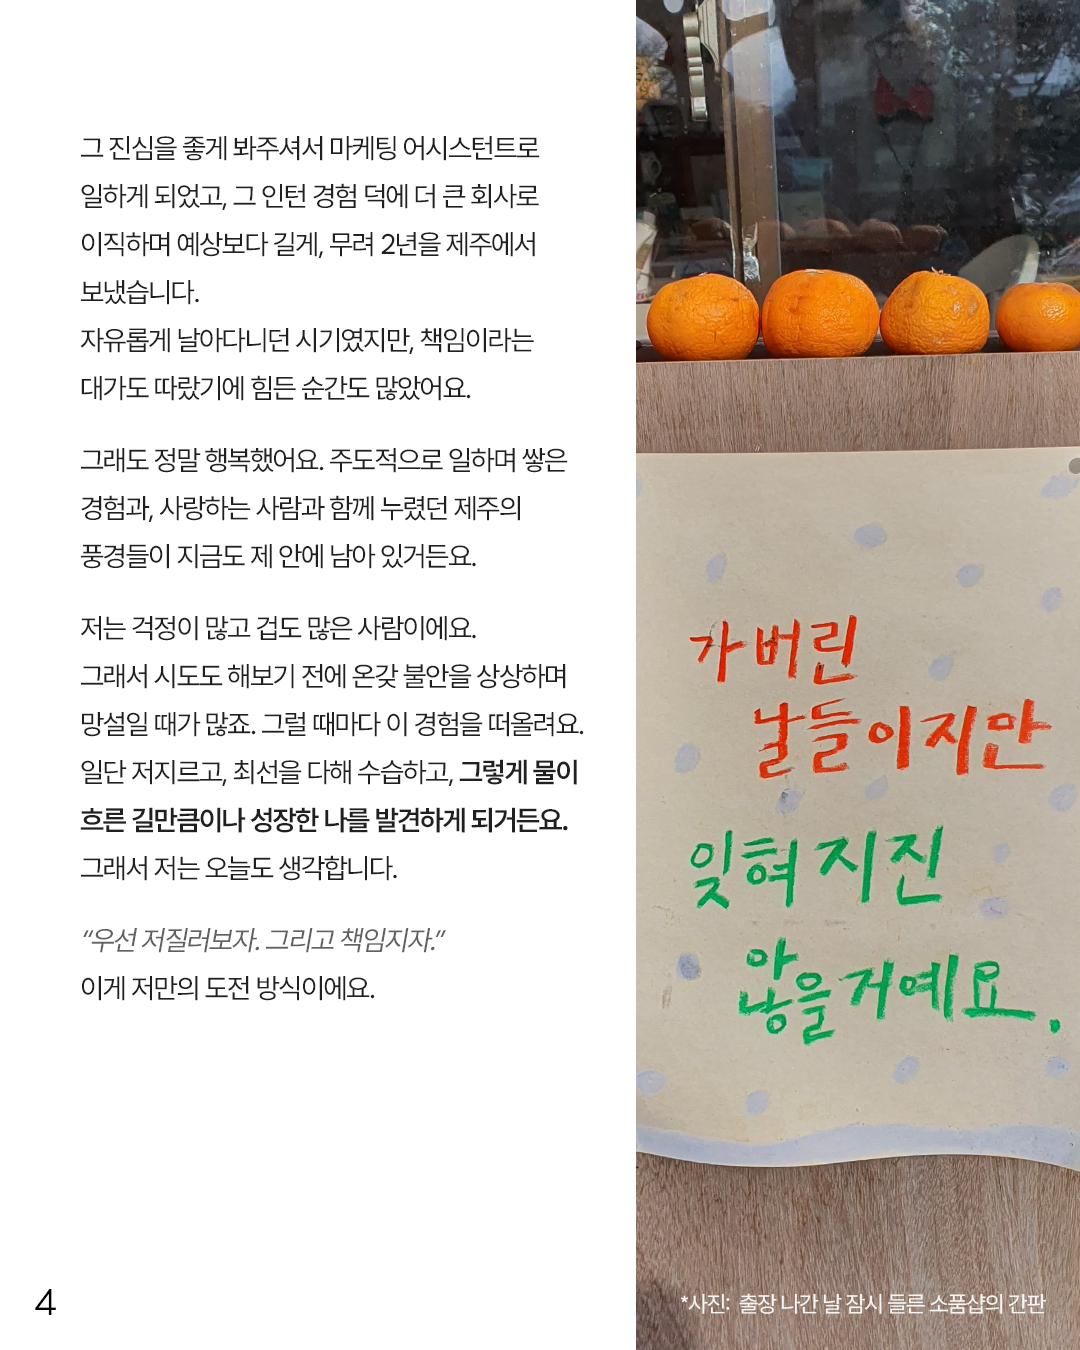 그 진심을 좋게 봐주셔서 마케팅 어시스턴트로
일하게 되었고, 그 인턴 경험 덕에 더 큰 회사로
이직하며 예상보다 길게, 무려 2년을 제주에서
보냈습니다.
자유롭게 날아다니던 시기였지만, 책임이라는
대가도 따랐기에 힘든 순간도 많았어요.
그래도 정말 행복했어요. 주도적으로 일하며 쌓은
경험과, 사랑하는 사람과 함께 누렸던 제주의
풍경들이 지금도 제 안에 남아 있거든요.
저는 걱정이 많고 겁도 많은 사람이에요.
그래서 시도도 해보기 전에 온갖 불안을 상상하며
망설일 때가 많죠. 그럴 때마다 이 경험을 떠올려요.
일단 저지르고, 최선을 다해 수습하고, 그렇게 물이
흐른 길만큼이나 성장한 나를 발견하게 되거든요.
그래서 저는 오늘도 생각합니다.
“우선 저질러보자. 그리고 책임지자.”
이게 저만의 도전 방식이에요.
4
가버린
날들이지만
잊혀지진
않을거예요.
*사진: 출장 나간 날 잠시 들른 소품샵의 간판